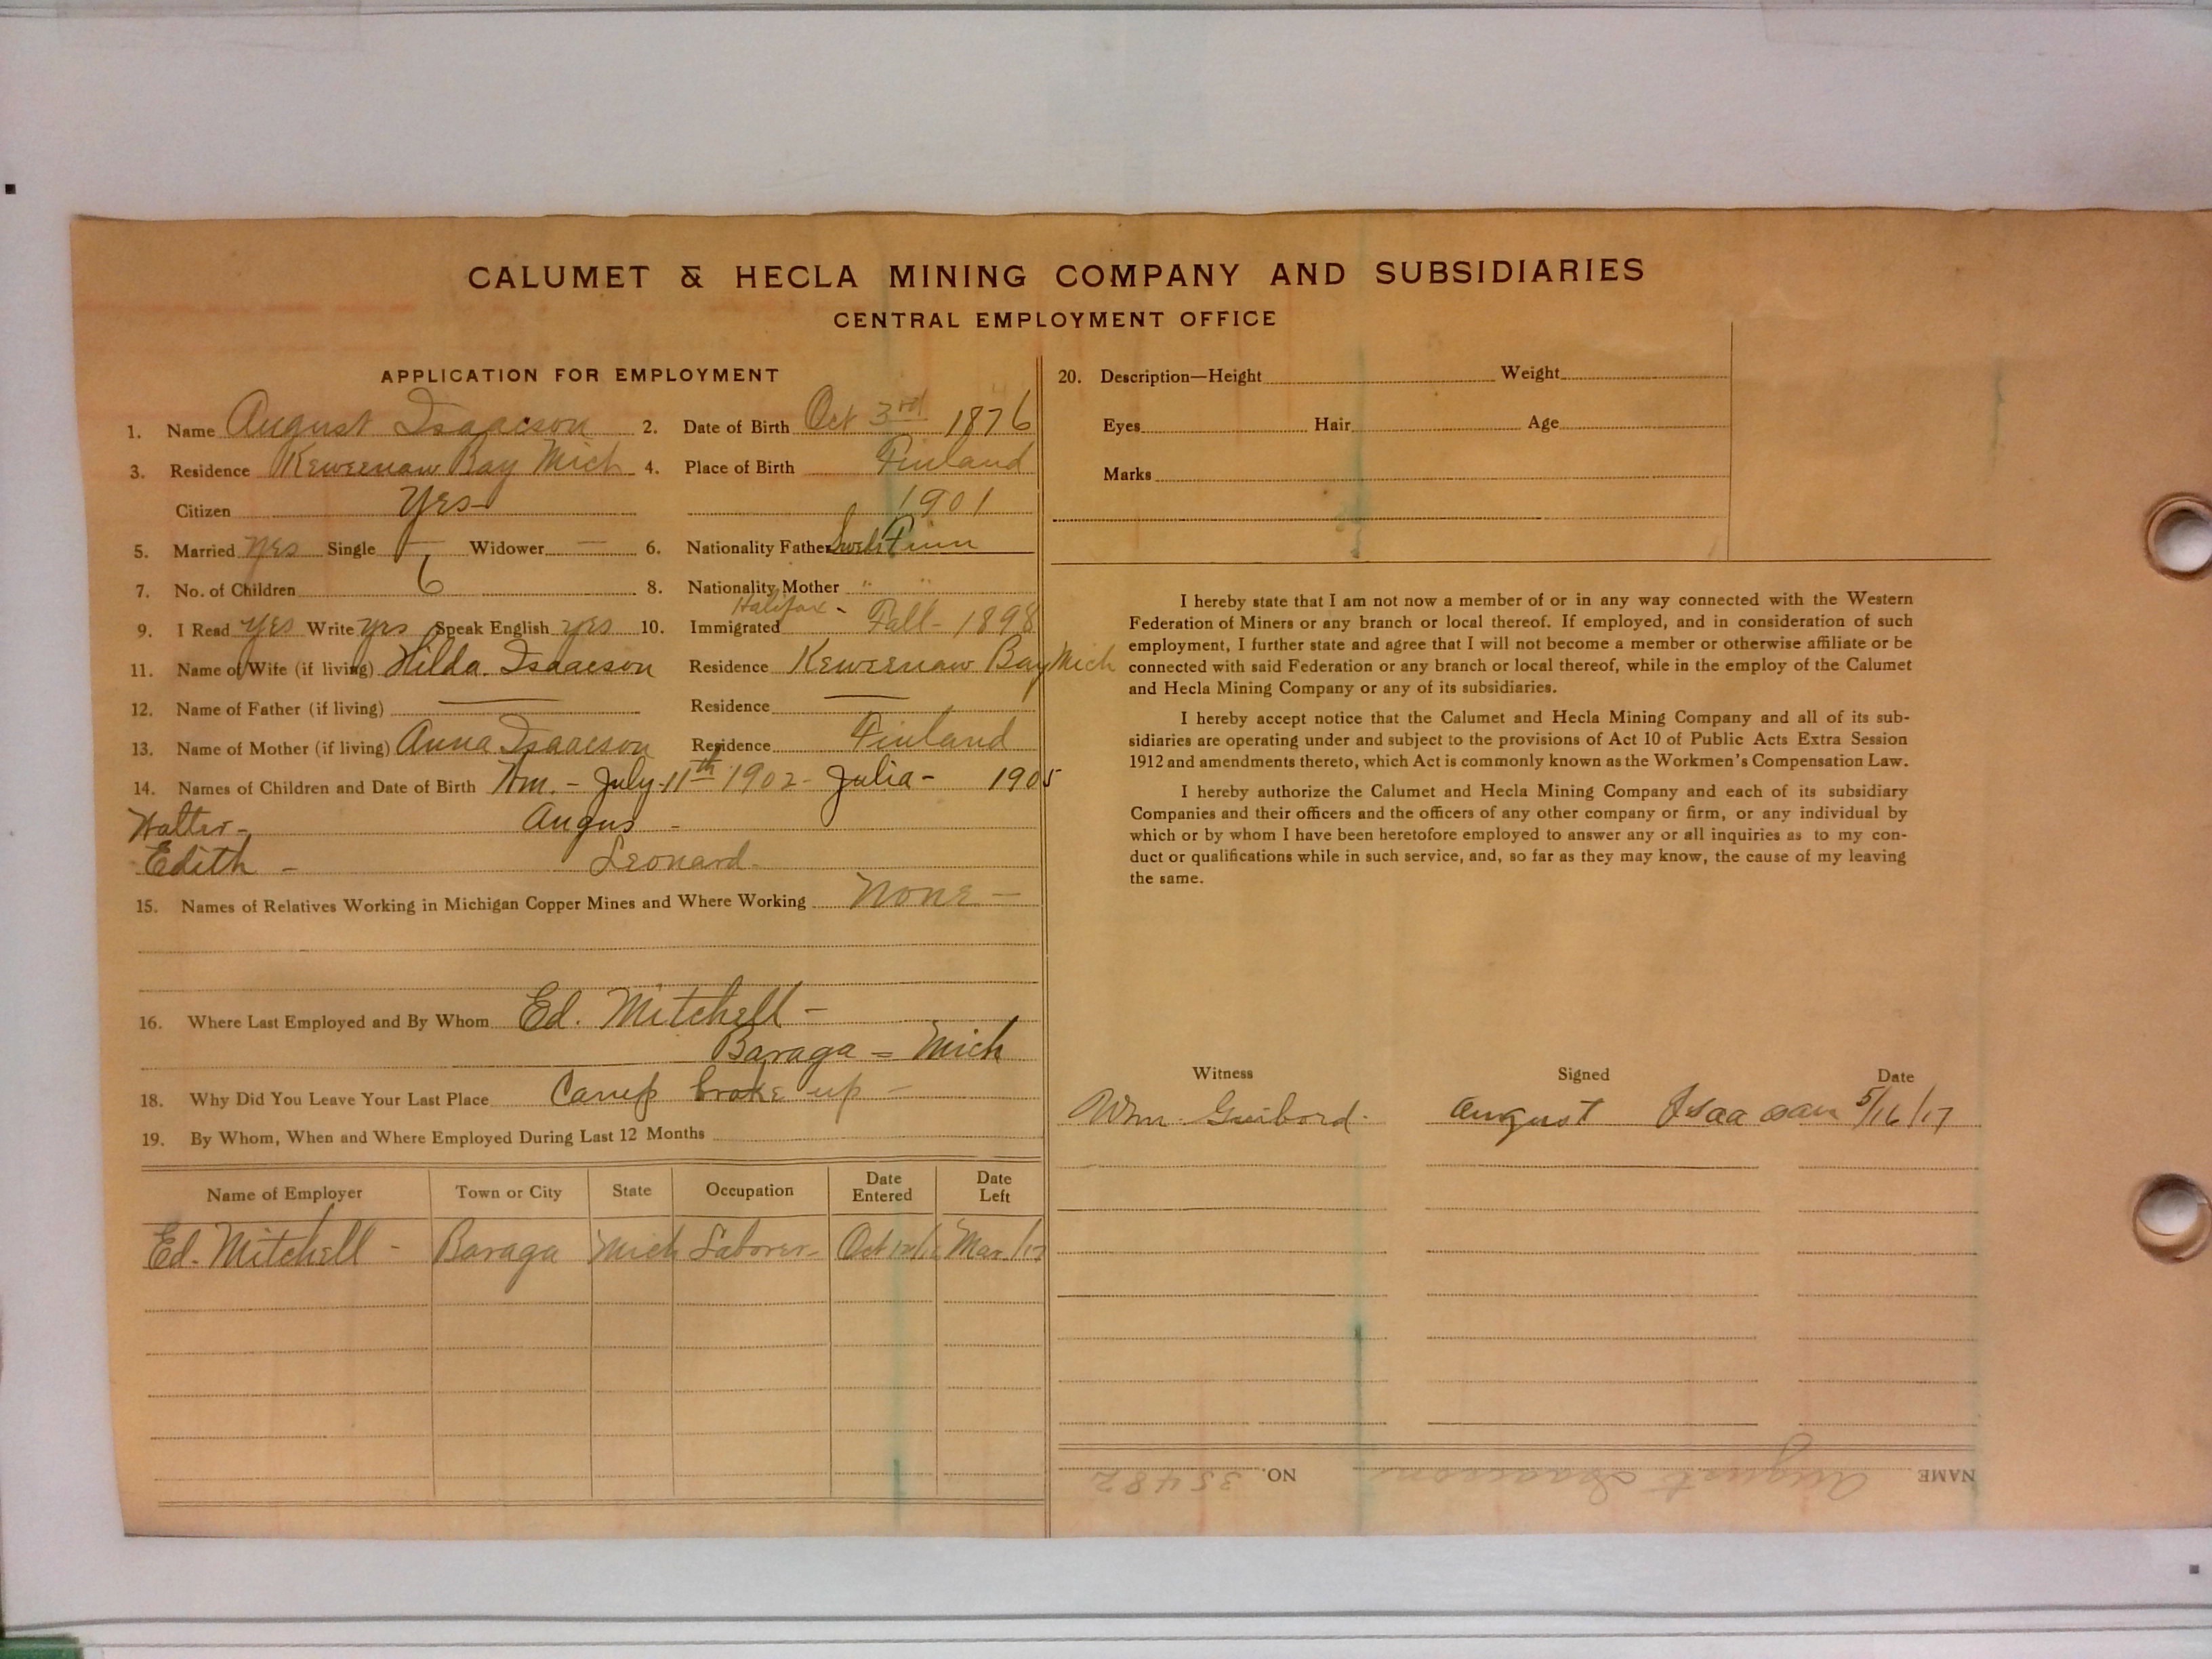 CALUMET & HECLA MINING COMPANY AND SUBSIDIARIES
CENTRAL EMPLOYMENT OFFICE
APPLICATION FOR EMPLOYMENT
1. Name August Isaacson 2. Date of Birth Oct 3rd 1876
3. Residence Keweenaw Bay Mich 4. Place of Birth Finland
Citizen Yes 1901
5. Married Yes Single — Widower — 6. Nationality Father Finn
7. No. of Children 6 8. Nationality Mother " "
9. I Read Yes Write Yes Speak English Yes 10. Immigrated Halifax - Fall - 1898
11. Name of Wife (if living) Hilda Isaacson Residence Keweenaw Bay Mich
12. Name of Father (if living) — Residence —
13. Name of Mother (if living) Anna Isaacson Residence Finland
14. Names of Children and Date of Birth Wm. - July 11th 1902 - Julia - 1905
Walter - Angus -
Edith - Leonard -
15. Names of Relatives Working in Michigan Copper Mines and Where Working None —
16. Where Last Employed and By Whom Ed. Mitchell -
Baraga = Mich
18. Why Did You Leave Your Last Place Camp broke up -
19. By Whom, When and Where Employed During Last 12 Months
Name of Employer Town or City State Occupation Date Entered Date Left
Ed. Mitchell - Baraga Mich Laborer - Oct Mar/17
20. Description—Height Weight
Eyes Hair Age
Marks
I hereby state that I am not now a member of or in any way connected with the Western
Federation of Miners or any branch or local thereof. If employed, and in consideration of such
employment, I further state and agree that I will not become a member or otherwise affiliate or be
connected with said Federation or any branch or local thereof, while in the employ of the Calumet
and Hecla Mining Company or any of its subsidiaries.
I hereby accept notice that the Calumet and Hecla Mining Company and all of its sub-
sidiaries are operating under and subject to the provisions of Act 10 of Public Acts Extra Session
1912 and amendments thereto, which Act is commonly known as the Workmen's Compensation Law.
I hereby authorize the Calumet and Hecla Mining Company and each of its subsidiary
Companies and their officers and the officers of any other company or firm, or any individual by
which or by whom I have been heretofore employed to answer any or all inquiries as to my con-
duct or qualifications while in such service, and, so far as they may know, the cause of my leaving
the same.
Witness Signed Date
Wm. Guibord. August Isaacson 5/16/17
NAME August Isaacson NO. 35482